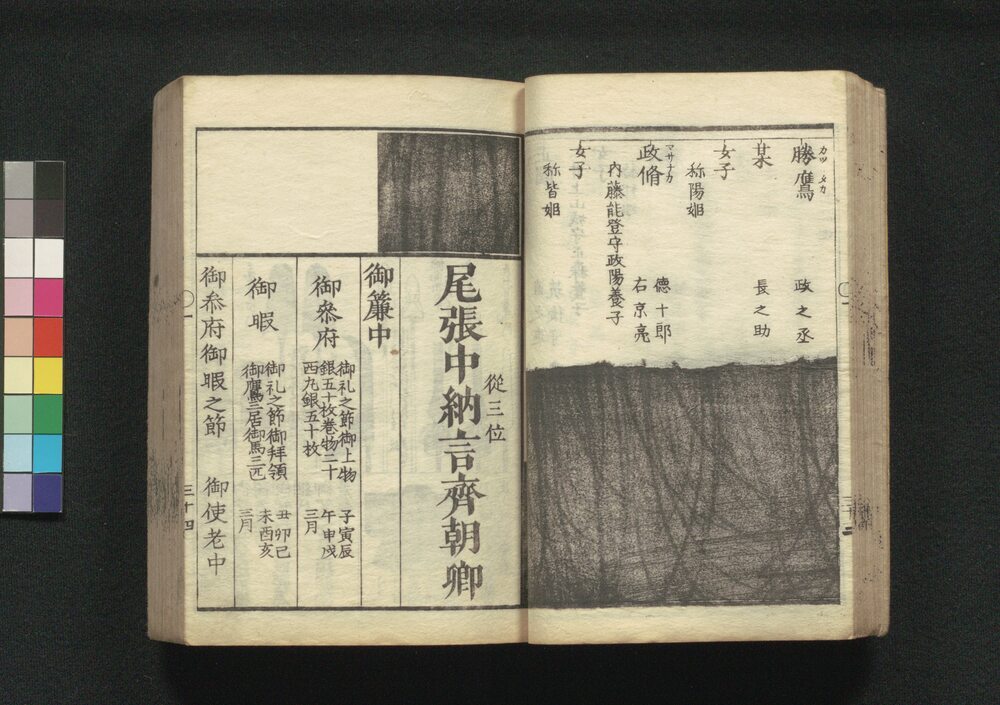 勝鷹 カツタカ 政之丞
某 長之助
女子
称陽姫
政脩 マサナカ 徳十郎
右京亮
内藤能登守政陽養子
女子
称皆姫
従三位
尾張中納言齊朝卿
御簾中
御参府
御礼之節御上物
銀五十枚巻物二十
西丸銀五十枚
子寅辰
午申戌
三月
御暇
御礼之節御拝領
御鷹三居御馬三疋
丑卯巳
未酉亥
三月
御参府御暇之節 御使老中
三十四